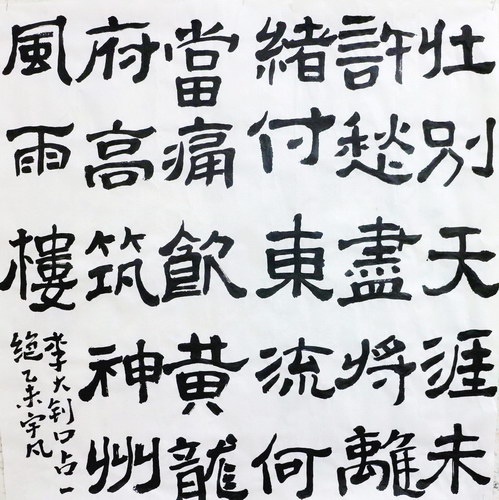 壮別天涯未
許愁盡将離
緒付東流何
當痛飲黄龍
府高筑神州
風雨樓
李大钊口占一
绝乙未宇凡